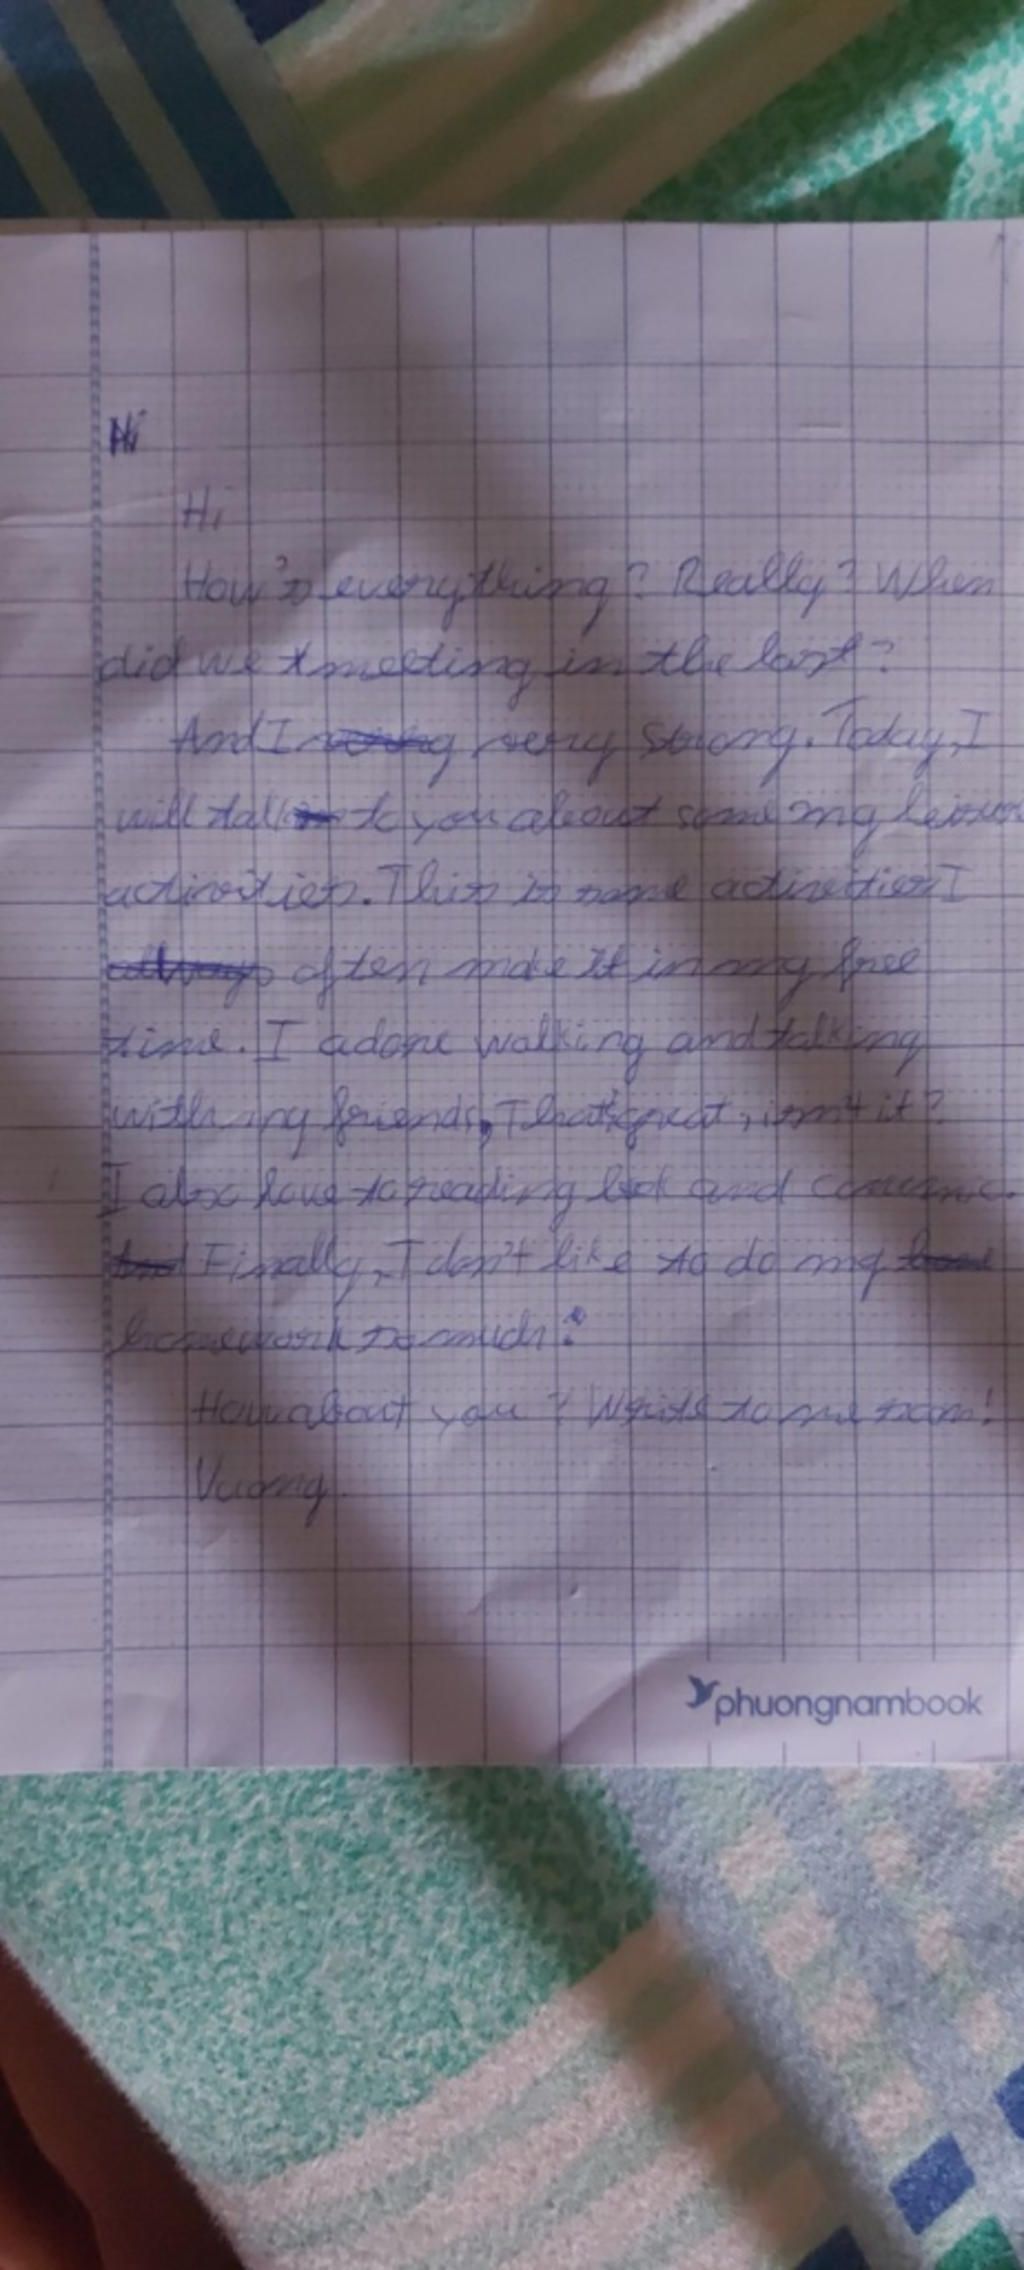 Hi
Hi
How's everything? Really? When
did we meeting in the last?
And I very strong. Today, I
will talk to you about some my leisure
activities. This is some activities I
often make it in my free
time. I adore walking and talking
with my friends, That's great, isn't it?
I also love to reading book and
Finally, I don't like to do my
homework so much:
How about you? Write to me soon!
Vuong
phuongnambook